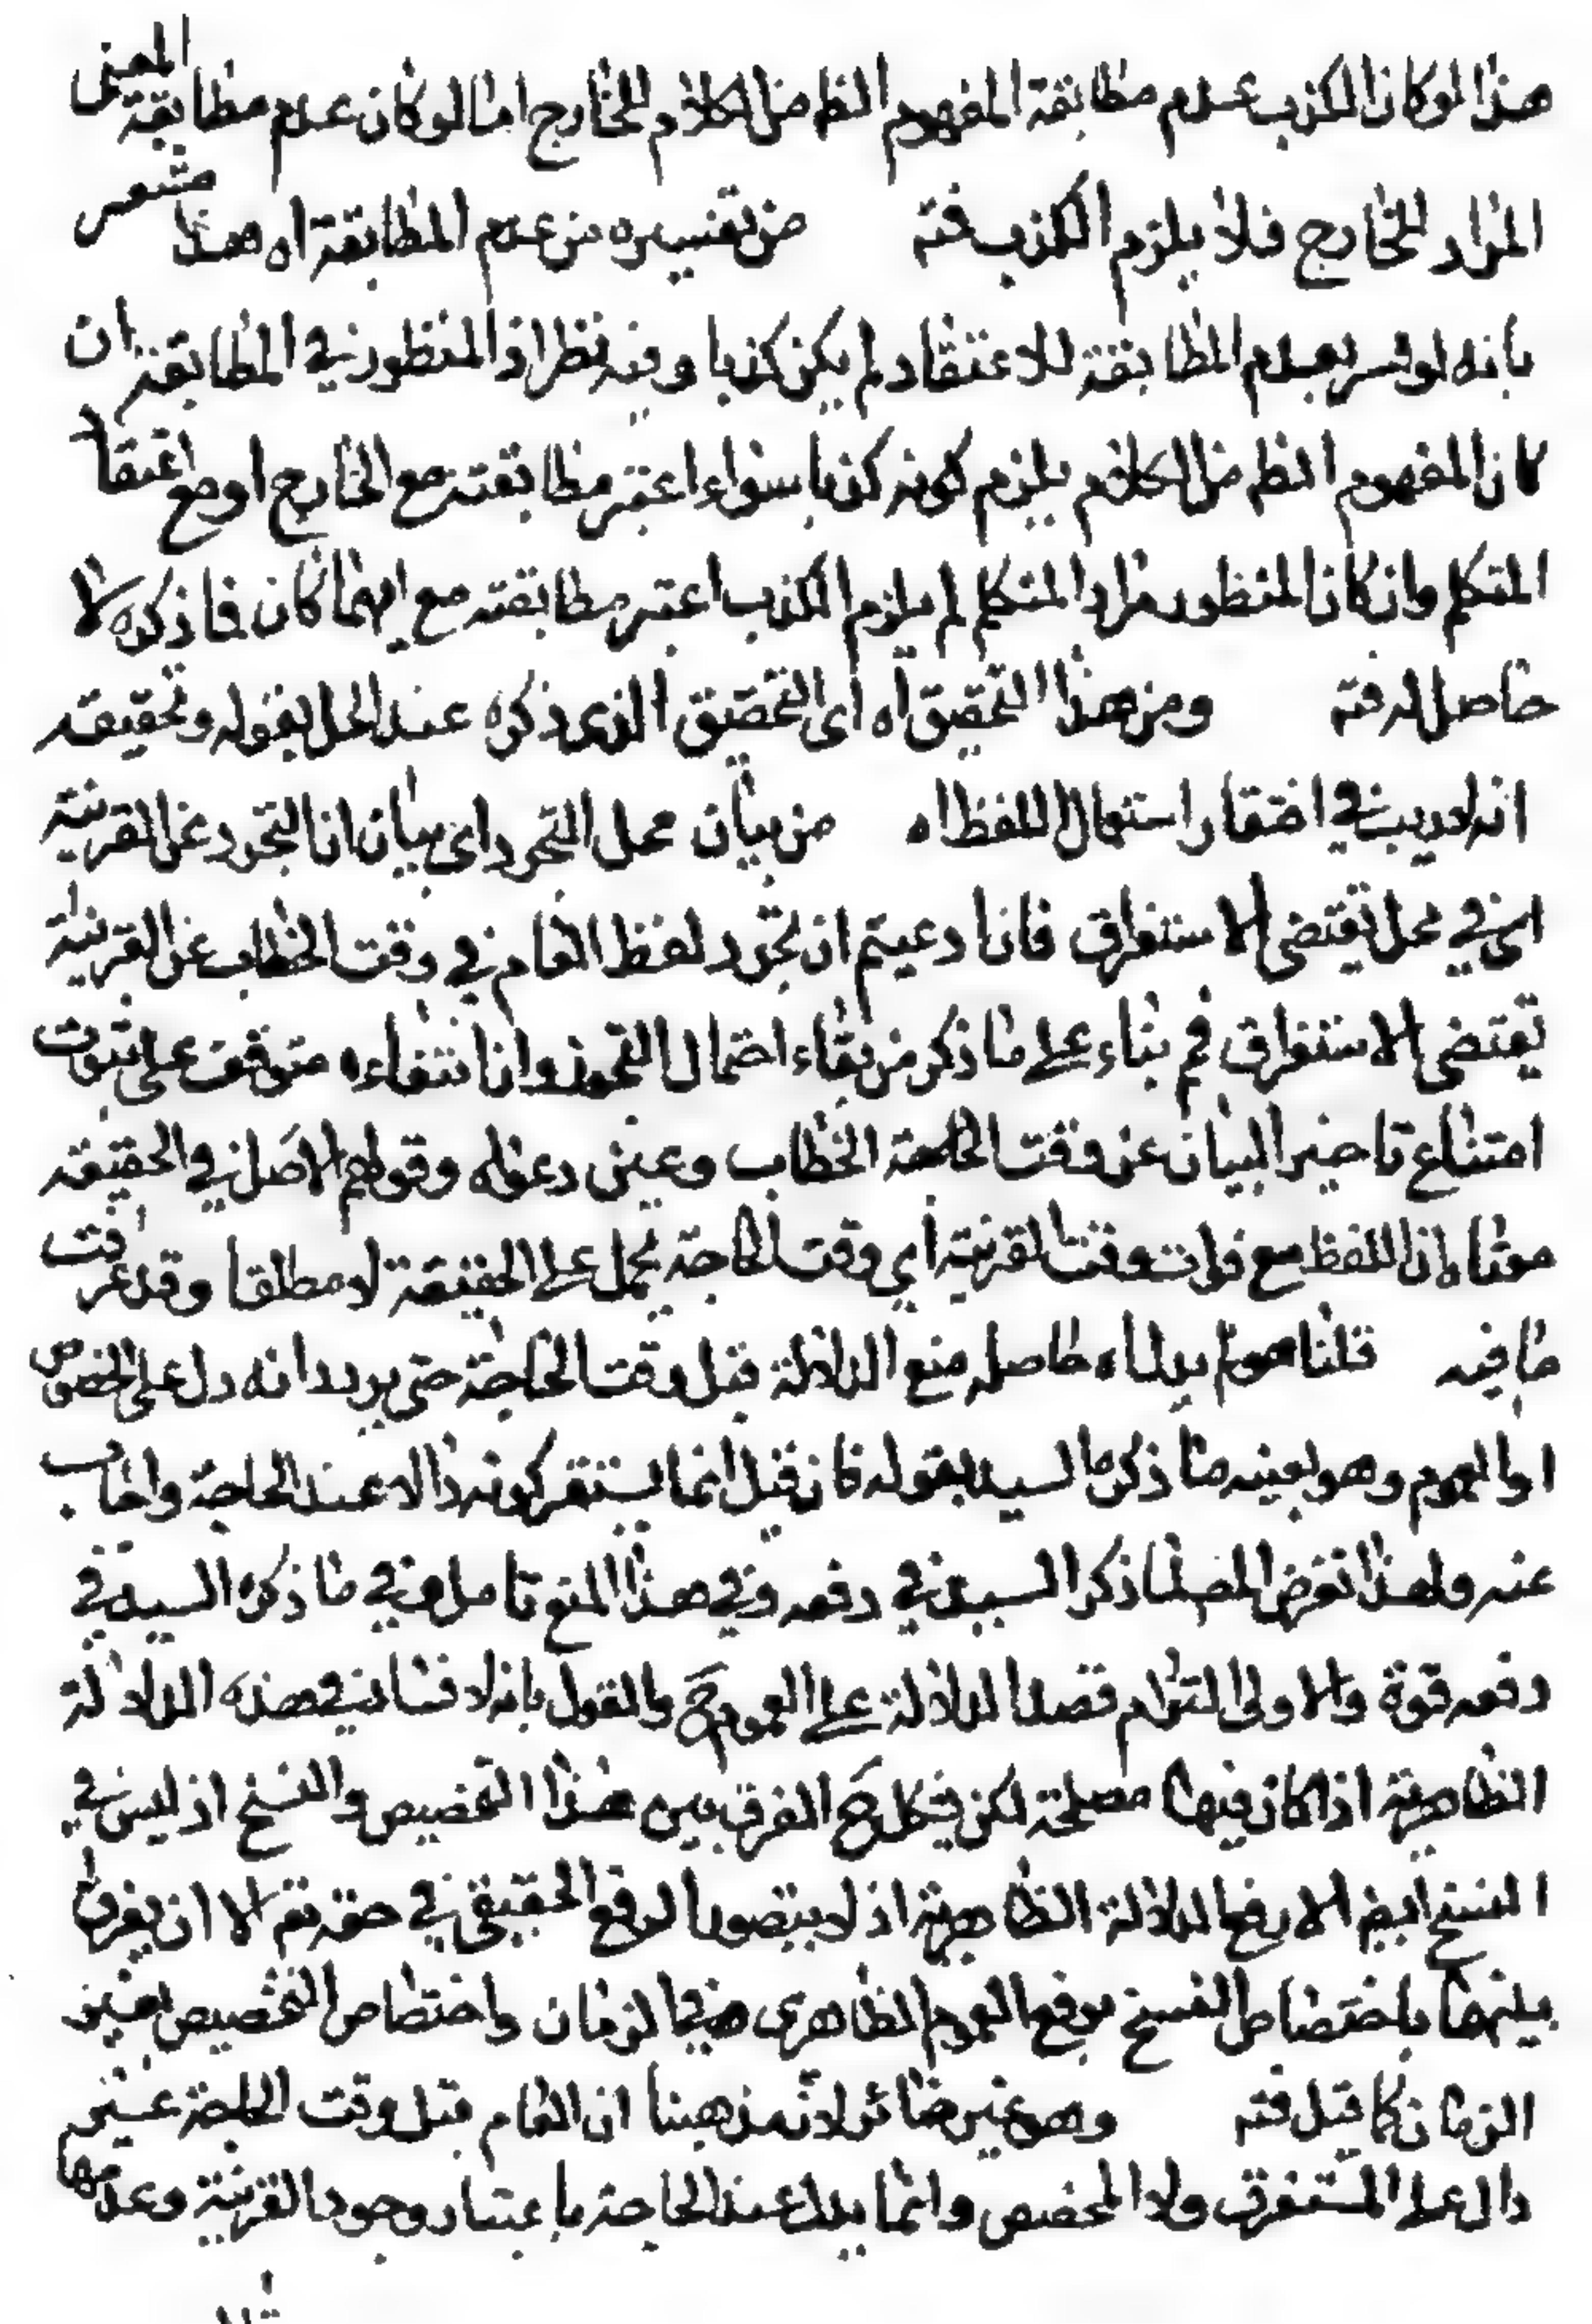 هذا لو كان الكذب عدم مطابقة المفهوم الظ من الكلام للخارج اما لو كان عدم مطابقة المعنى
المراد للخارج فلا يلزم الكذب فتم من تفسيره من عدم المطابقة اه هذا مشعر
بانه لو فسر بعدم المطابقة للاعتقاد لم يكن كذبا وفيه نظر اذ المنظور في المطابقة ان
كان المفهوم الظ من الكلام يلزم كونه كذبا سواء اعتبر مطابقته مع الخارج او مع اعتقاد
المتكلم وان كان المنظور مراد المتكلم لم يلزم الكذب اعتبر مطابقته مع ايهما كان فما ذكره لا
حاصل له فتم ومن هذا التحقيق اه اى التحقيق الذى ذكره عند الحل بقوله وتحقيقه
انه لا ريب في افتقار استعمال اللفظ اه من بيان محل التجرد اى بيان ان التجرد عن القرينة
اى في محل تقتضى الاستغراق فان ادعيتم ان تجرد لفظ العام في وقت الخطاب عن القرينة
يقتضى الاستغراق فم بناء على ما ذكر من بقاء احتمال التجوز وان انتفاءه متوقف على ثبوت
امتناع تاخير البيان عن وقت الخطاب وعين دعواه وقولهم الاصل في الحقيقة
معناه ان اللفظ مع فوات وقت القرينة اي وقت الحاجة يحمل على الحقيقة لا مطلقا وقد عرفت
ما فيه قلنا هو لم يدل اه حاصله منع الدلالة قبل وقت الحاجة حتى يريد انه دل على الخصوص
او العموم وهو بعينه ما ذكره السيد بقوله فان قيل انما يستقر كونه دالا عند الحاجة واجاب
عنه ولهذا تعرض المص لما ذكر السيد في دفعه وفي هذا المنع تامل وفي ما ذكره السيد في
دفعه قوة والاولى التزام قصد الدلالة على العموم ح والقول بانه لا فساد في هذه الدلالة
الظاهرية اذا كان فيها مصلحة لكن يشكل ح الفرق بين هذا التخصيص والنسخ اذ ليس في
النسخ ايض الا رفع الدلالة الظاهرية اذ لا يتصور الرفع الحقيقى في حقه تع الا ان يفرق
بينهما باختصاص النسخ برفع العموم الظاهرى في الزمان واختصاص التخصيص بغير
الزمان كما قيل فتم وهو غير ضائر لان مذهبنا ان العام قبل وقت الحاجة غير
دال على المستغرق ولا المخصص وانما يدل عند الحاجة باعتبار وجود القرينة وعدمها